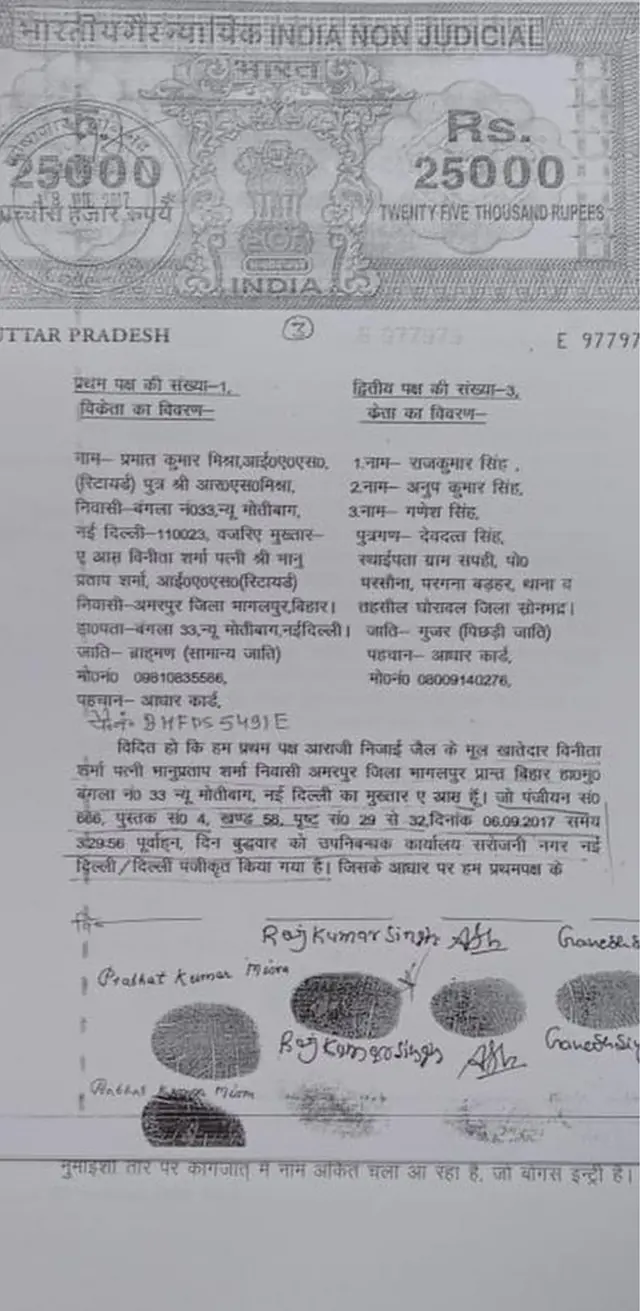 भारतीय गैर न्यायिक INDIA NON JUDICIAL
भारत
25000
पच्चीस हजार रुपये
Rs.
25000
TWENTY FIVE THOUSAND RUPEES
INDIA
UTTAR PRADESH
3
E 97797
प्रथम पक्ष की संख्या–1,
विकेता का विवरण–
नाम– प्रभात कुमार मिश्रा,आई०ए०एस०,
(रिटायर्ड) पुत्र श्री आर०एस०मिश्रा,
निवासी–बंगला नं०33,न्यू मोतीबाग,
नई दिल्ली–110023, वजरिए मुख्तार–
ए आम विनीता शर्मा पत्नी श्री भानु
प्रताप शर्मा, आई०ए०एस०(रिटायर्ड)
निवासी–अमरपुर जिला भागलपुर,बिहार।
हा०पता–बंगला 33,न्यू मोतीबाग,नईदिल्ली।
जाति– ब्राहमण (सामान्य जाति)
मो०नं० 09810835586,
पहचान– आधार कार्ड,
पैन नं० BHFPS5491E
द्वितीय पक्ष की संख्या–3,
केता का विवरण–
1.नाम– राजकुमार सिंह ,
2.नाम– अनुप कुमार सिंह,
3.नाम– गणेश सिंह,
पुत्रगण– देवदत्त सिंह,
स्थाईपता ग्राम सपही, पो०
परसौना, परगना बड़हर, थाना व
तहसील घोरावल जिला सोनभद्र।
जाति– गुजर (पिछड़ी जाति)
पहचान– आधार कार्ड,
मो०नं० 08009140276,
विदित हो कि हम प्रथम पक्ष आराजी निजाई जैल के मूल खातेदार विनीता
शर्मा पत्नी भानुप्रताप शर्मा निवासी अमरपुर जिला भागलपुर प्रान्त बिहार हा०मु०
बंगला नं० 33 न्यू मोतीबाग, नई दिल्ली का मुख्तार ए आम हूँ। जो पंजीयन सं०
666, पुस्तक सं० 4, खण्ड 58, पृष्ट सं० 29 से 32,दिनांक 06.09.2017 समय
3:29:56 पूर्वाहन, दिन बुद्धवार को उपनिबन्धक कार्यालय सरोजनी नगर नई
दिल्ली/दिल्ली पंजीकृत किया गया है। जिसके आधार पर हम प्रथमपक्ष के
Raj Kumar Singh
Ganesh S
Prabhat Kumar Misra
Raj Kumar Singh
Ganesh Sin
Prabhat Kumar Misra
नुमाइशी तौर पर कागजात् में नाम अंकित चला आ रहा है, जो बोगस इन्ट्री है।